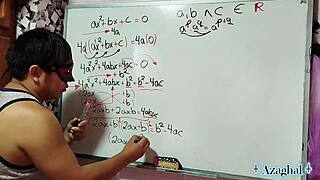 ax² + bx + c = 0
4a(ax² + bx + c) = 4a(0)
4a²x² + 4abx + 4ac = 0
4a²x² + 4abx + b² = b² - 4ac
2ax +b
+b
2axb + 2axb = 4abx
(2ax+b)(2ax+b) = b² - 4ac
(2ax
a, b ∧ c ∈ R
aᵖ·a^q = a^p+q
Azaghal